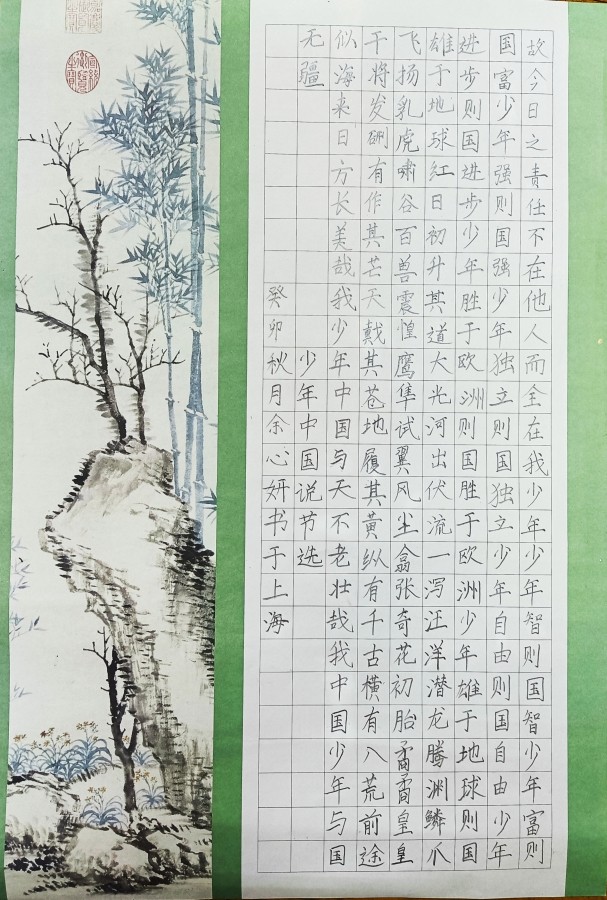 故今日之责任不在他人而全在我少年少年智则国智少年富则
国富少年强则国强少年独立则国独立少年自由则国自由少年
进步则国进步少年胜于欧洲则国胜于欧洲少年雄于地球则国
雄于地球红日初升其道大光河出伏流一泻汪洋潜龙腾渊鳞爪
飞扬乳虎啸谷百兽震惶鹰隼试翼风尘翕张奇花初胎矞矞皇皇
干将发硎有作其芒天戴其苍地履其黄纵有千古横有八荒前途
似海来日方长美哉我少年中国与天不老壮哉我中国少年与国
无疆
少年中国说节选
癸卯秋月余心妍书于上海